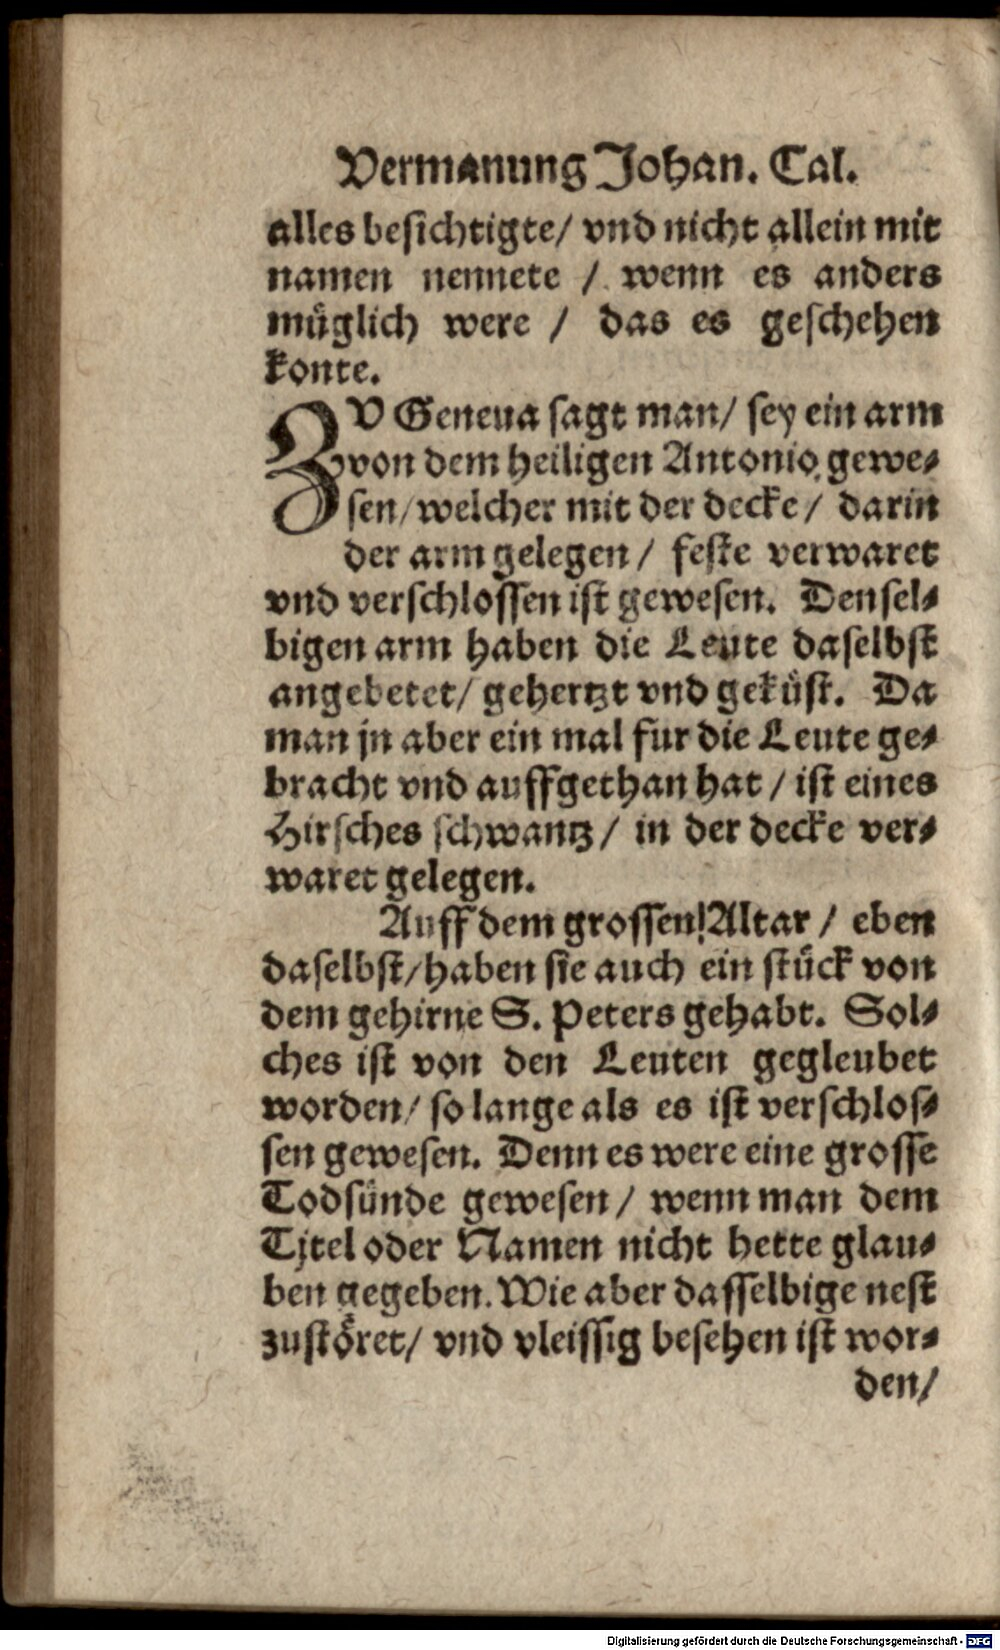 Vermanung Johan. Cal.
alles besichtigte/ vnd nicht allein mit
namen nennete / wenn es anders
müglich were / das es geschehen
konte.
ZV Geneua sagt man/ sey ein arm
von dem heiligen Antonio gewe⸗
sen/welcher mit der decke/ darin
der arm gelegen/ feste verwaret
vnd verschlossen ist gewesen. Densel⸗
bigen arm haben die Leute daselbst
angebetet/ gehertzt vnd geküst. Da
man jn aber ein mal fur die Leute ge⸗
bracht vnd auffgethan hat / ist eines
Hirsches schwantz/ in der decke ver⸗
waret gelegen.
Auff dem grossen!Altar / eben
daselbst/haben sie auch ein stück von
dem gehirne S. Peters gehabt. Sol⸗
ches ist von den Leuten gegleubet
worden/ so lange als es ist verschlos⸗
sen gewesen. Denn es were eine grosse
Todsünde gewesen/ wenn man dem
Tjtel oder Namen nicht hette glau⸗
ben gegeben. Wie aber dasselbige nest
zustöret/ vnd vleissig besehen ist wor⸗
den/
Digitalisierung gefördert durch die Deutsche Forschungsgemeinschaft - DFG